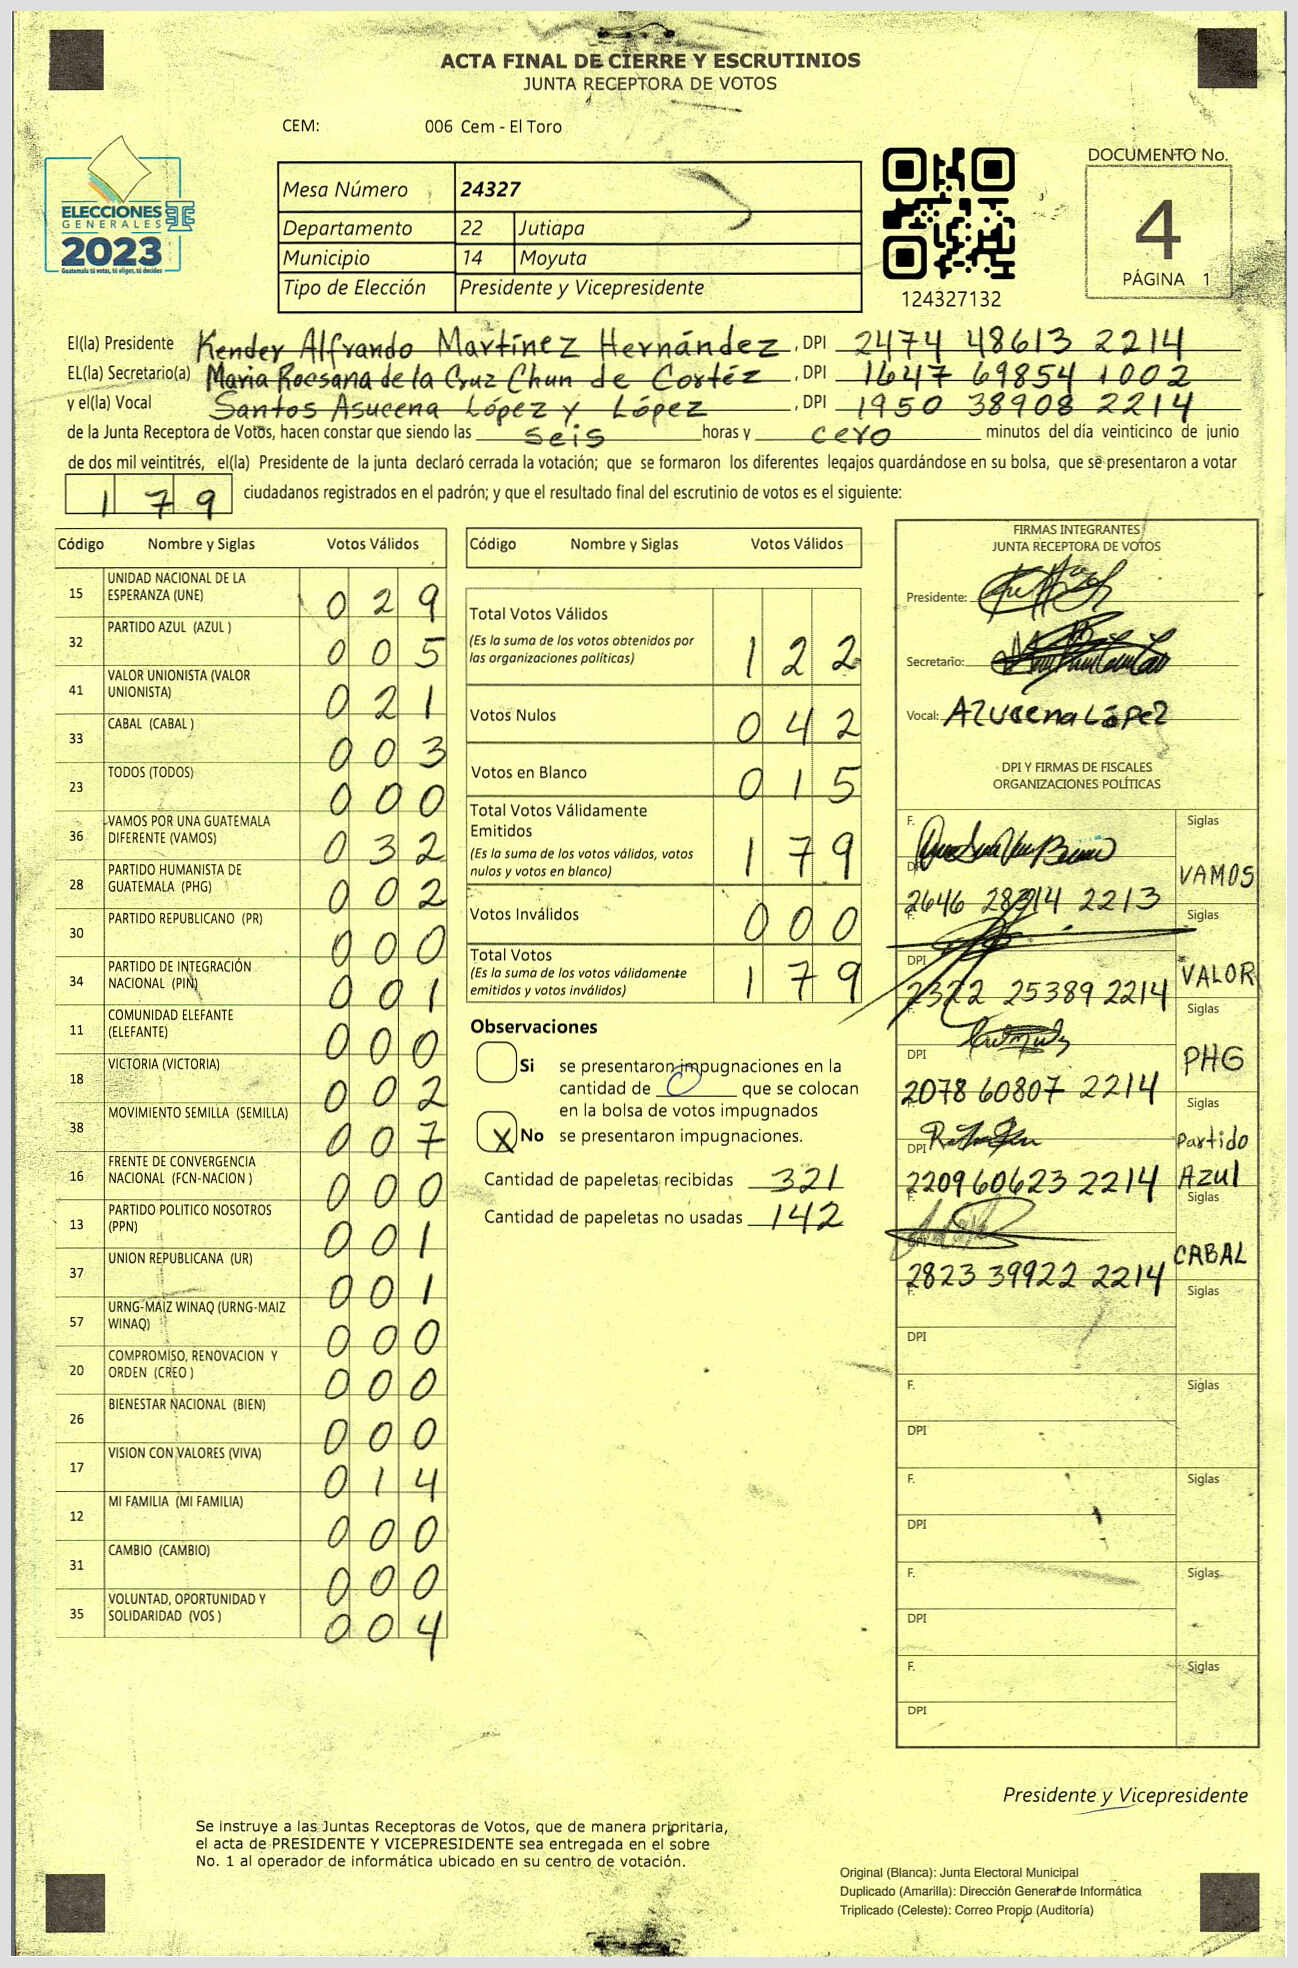 ACTA FINAL DE CIERRE Y ESCRUTINIOS
JUNTA RECEPTORA DE VOTOS
CEM: 006 Cem - El Toro
ELECCIONES
GENERALES
2023
Guatemala tú votas, tú eliges, tú decides
Mesa Número 24327
Departamento 22 Jutiapa
Municipio 14 Moyuta
Tipo de Elección Presidente y Vicepresidente
124327132
DOCUMENTO No.
4
PÁGINA 1
El(la) Presidente Kender Alfrando Martínez Hernández, DPI 2474 48613 2214
EL(la) Secretario(a) Maria Rocsana de la Cruz Chun de Cortéz, DPI 1647 69854 1002
y el(la) Vocal Santos Asucena López y López, DPI 1950 38908 2214
de la Junta Receptora de Votos, hacen constar que siendo las seis horas y cero minutos del día veinticinco de junio
de dos mil veintitrés, el(la) Presidente de la junta declaró cerrada la votación; que se formaron los diferentes legajos guardándose en su bolsa, que se presentaron a votar
179 ciudadanos registrados en el padrón; y que el resultado final del escrutinio de votos es el siguiente:
Código Nombre y Siglas Votos Válidos
15 UNIDAD NACIONAL DE LA ESPERANZA (UNE) 029
32 PARTIDO AZUL (AZUL ) 005
41 VALOR UNIONISTA (VALOR UNIONISTA) 021
33 CABAL (CABAL ) 003
23 TODOS (TODOS) 000
36 VAMOS POR UNA GUATEMALA DIFERENTE (VAMOS) 032
28 PARTIDO HUMANISTA DE GUATEMALA (PHG) 002
30 PARTIDO REPUBLICANO (PR) 000
34 PARTIDO DE INTEGRACIÓN NACIONAL (PIN) 001
11 COMUNIDAD ELEFANTE (ELEFANTE) 000
18 VICTORIA (VICTORIA) 002
38 MOVIMIENTO SEMILLA (SEMILLA) 007
16 FRENTE DE CONVERGENCIA NACIONAL (FCN-NACION ) 000
13 PARTIDO POLITICO NOSOTROS (PPN) 001
37 UNION REPUBLICANA (UR) 001
57 URNG-MAIZ WINAQ (URNG-MAIZ WINAQ) 000
20 COMPROMISO, RENOVACION Y ORDEN (CREO ) 000
26 BIENESTAR NACIONAL (BIEN) 000
17 VISION CON VALORES (VIVA) 014
12 MI FAMILIA (MI FAMILIA) 000
31 CAMBIO (CAMBIO) 000
35 VOLUNTAD, OPORTUNIDAD Y SOLIDARIDAD (VOS ) 004
Código Nombre y Siglas Votos Válidos
Total Votos Válidos 122
(Es la suma de los votos obtenidos por
las organizaciones políticas)
Votos Nulos 042
Votos en Blanco 015
Total Votos Válidamente
Emitidos 179
(Es la suma de los votos válidos, votos
nulos y votos en blanco)
Votos Inválidos 000
Total Votos 179
(Es la suma de los votos válidamente
emitidos y votos inválidos)
Observaciones
Si se presentaron impugnaciones en la
cantidad de 0 que se colocan
en la bolsa de votos impugnados
X No se presentaron impugnaciones.
Cantidad de papeletas recibidas 321
Cantidad de papeletas no usadas 142
FIRMAS INTEGRANTES
JUNTA RECEPTORA DE VOTOS
Presidente:
Secretario:
Vocal: Azucena López
DPI Y FIRMAS DE FISCALES
ORGANIZACIONES POLÍTICAS
F. Siglas
DPI 2646 28314 2213 VAMOS
F. Siglas
DPI 2322 25389 2214 VALOR
F. Siglas
DPI 2078 60807 2214 PHG
F. Siglas
DPI 2209 60623 2214 Partido Azul
F. Siglas
DPI 2823 39922 2214 CABAL
F. Siglas
DPI
F. Siglas
DPI
F. Siglas
DPI
F. Siglas
DPI
F. Siglas
DPI
Presidente y Vicepresidente
Se instruye a las Juntas Receptoras de Votos, que de manera prioritaria,
el acta de PRESIDENTE Y VICEPRESIDENTE sea entregada en el sobre
No. 1 al operador de informática ubicado en su centro de votación.
Original (Blanca): Junta Electoral Municipal
Duplicado (Amarilla): Dirección General de Informática
Triplicado (Celeste): Correo Propio (Auditoría)